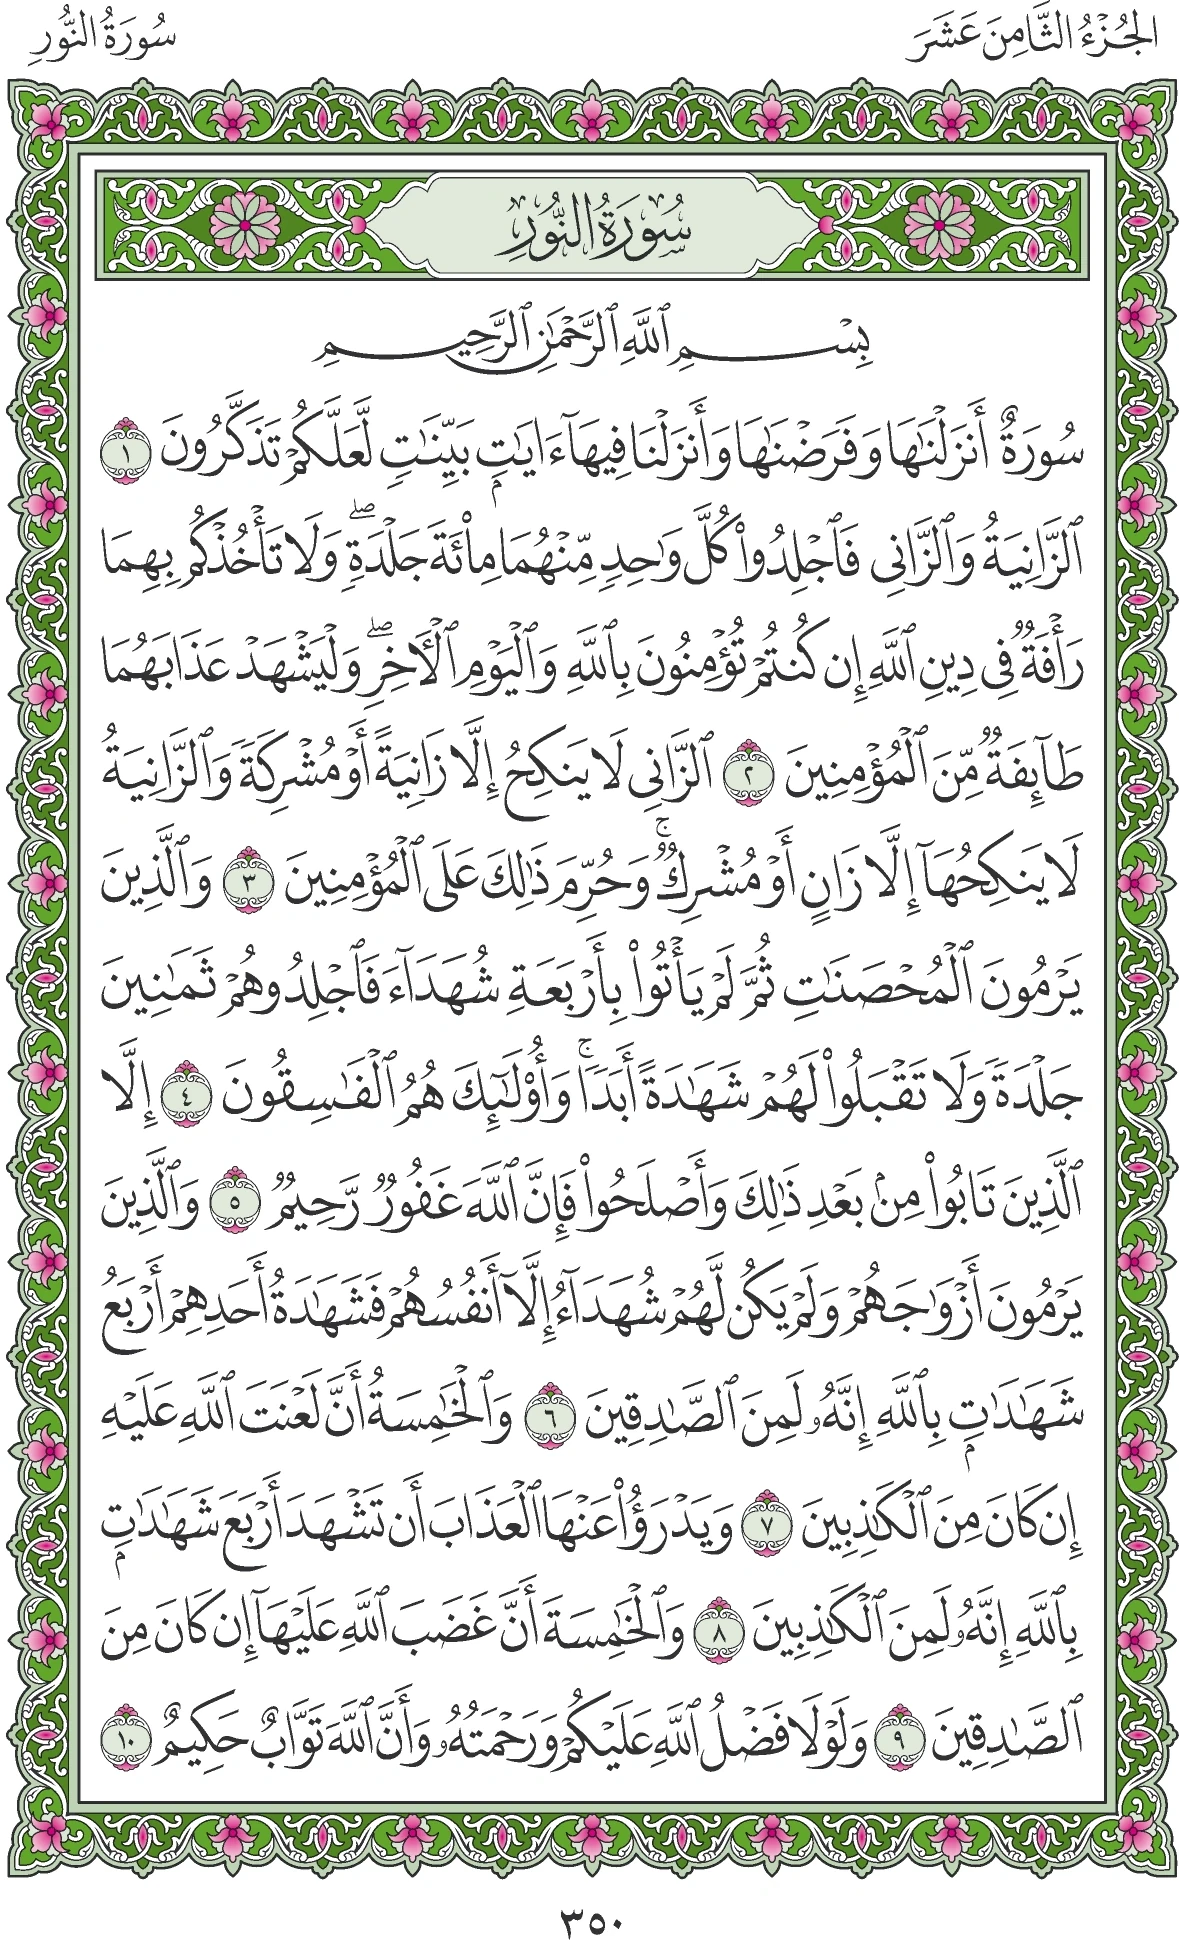 الجُزْءُ الثَّامِنَ عَشَرَ
سُورَةُ النُّورِ
سُورَةُ النُّورِ
بِسْمِ ٱللَّهِ ٱلرَّحْمَٰنِ ٱلرَّحِيمِ
سُورَةٌ أَنزَلْنَٰهَا وَفَرَضْنَٰهَا وَأَنزَلْنَا فِيهَآ ءَايَٰتِۭ بَيِّنَٰتٖ لَّعَلَّكُمْ تَذَكَّرُونَ ١
ٱلزَّانِيَةُ وَٱلزَّانِي فَٱجْلِدُوا۟ كُلَّ وَٰحِدٖ مِّنْهُمَا مِا۟ئَةَ جَلْدَةٖۖ وَلَا تَأْخُذْكُم بِهِمَا
رَأْفَةٞ فِي دِينِ ٱللَّهِ إِن كُنتُمْ تُؤْمِنُونَ بِٱللَّهِ وَٱلْيَوْمِ ٱلْأٓخِرِۖ وَلْيَشْهَدْ عَذَابَهُمَا
طَآئِفَةٞ مِّنَ ٱلْمُؤْمِنِينَ ٢ ٱلزَّانِي لَا يَنكِحُ إِلَّا زَانِيَةً أَوْ مُشْرِكَةٗ وَٱلزَّانِيَةُ
لَا يَنكِحُهَآ إِلَّا زَانٍ أَوْ مُشْرِكٞۚ وَحُرِّمَ ذَٰلِكَ عَلَى ٱلْمُؤْمِنِينَ ٣ وَٱلَّذِينَ
يَرْمُونَ ٱلْمُحْصَنَٰتِ ثُمَّ لَمْ يَأْتُوا۟ بِأَرْبَعَةِ شُهَدَآءَ فَٱجْلِدُوهُمْ ثَمَٰنِينَ
جَلْدَةٗ وَلَا تَقْبَلُوا۟ لَهُمْ شَهَٰدَةً أَبَدٗاۚ وَأُو۟لَٰٓئِكَ هُمُ ٱلْفَٰسِقُونَ ٤ إِلَّا
ٱلَّذِينَ تَابُوا۟ مِنۢ بَعْدِ ذَٰلِكَ وَأَصْلَحُوا۟ فَإِنَّ ٱللَّهَ غَفُورٞ رَّحِيمٞ ٥ وَٱلَّذِينَ
يَرْمُونَ أَزْوَٰجَهُمْ وَلَمْ يَكُن لَّهُمْ شُهَدَآءُ إِلَّآ أَنفُسُهُمْ فَشَهَٰدَةُ أَحَدِهِمْ أَرْبَعُ
شَهَٰدَٰتِۭ بِٱللَّهِ إِنَّهُۥ لَمِنَ ٱلصَّٰدِقِينَ ٦ وَٱلْخَٰمِسَةُ أَنَّ لَعْنَتَ ٱللَّهِ عَلَيْهِ
إِن كَانَ مِنَ ٱلْكَٰذِبِينَ ٧ وَيَدْرَؤُا۟ عَنْهَا ٱلْعَذَابَ أَن تَشْهَدَ أَرْبَعَ شَهَٰدَٰتِۭ
بِٱللَّهِ إِنَّهُۥ لَمِنَ ٱلْكَٰذِبِينَ ٨ وَٱلْخَٰمِسَةَ أَنَّ غَضَبَ ٱللَّهِ عَلَيْهَآ إِن كَانَ مِنَ
ٱلصَّٰدِقِينَ ٩ وَلَوْلَا فَضْلُ ٱللَّهِ عَلَيْكُمْ وَرَحْمَتُهُۥ وَأَنَّ ٱللَّهَ تَوَّابٌ حَكِيمٌ ١٠
٣٥٠